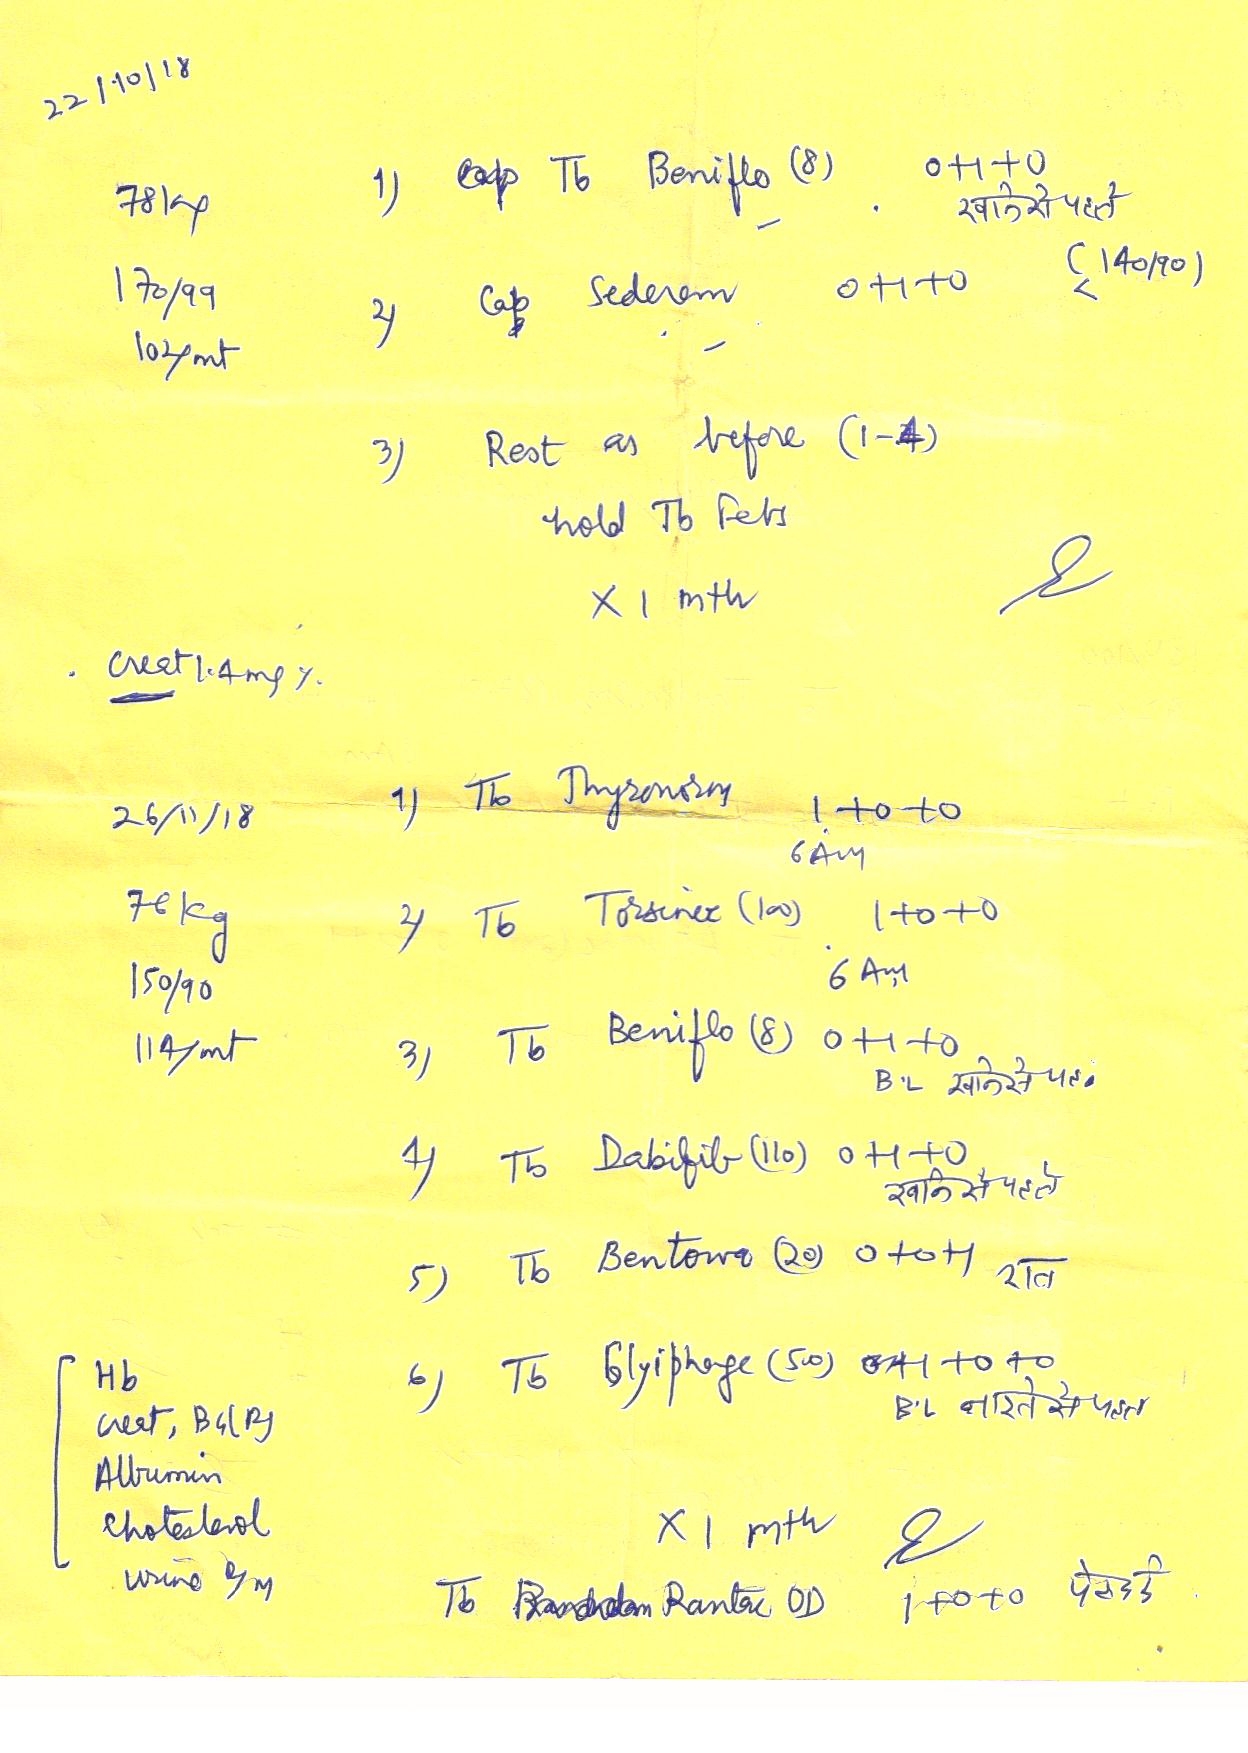 22/10/18
78 kg
1) Tb Beniflo (8) 0+1+0
खाने से पहले
170/99
2) Cap Sederem 0+1+0 (140/90)
<
102/mt
3) Rest as before (1-4)
hold Tb Febs
X 1 mth
Creat 1.4 mg %.
26/11/18
1) Tb Thyronorm 1+0+0
6 Am
76 kg
2) Tb Torsinex (100) 1+0+0
6 Am
150/90
114/mt
3) Tb Beniflo (8) 0+1+0
B.L खाने से
4) Tb Dabifib (110) 0+1+0
खाने से पहले
5) Tb Bentowa (20) 0+0+1 रात
6) Tb Glyiphage (500) 1+0+0
B.L नाश्ते से पहले
Hb
Creat,
Albumin
Cholesterol
Urine R/M
X 1 mth
Tb Rantac OD 1+0+0 पेटदर्द